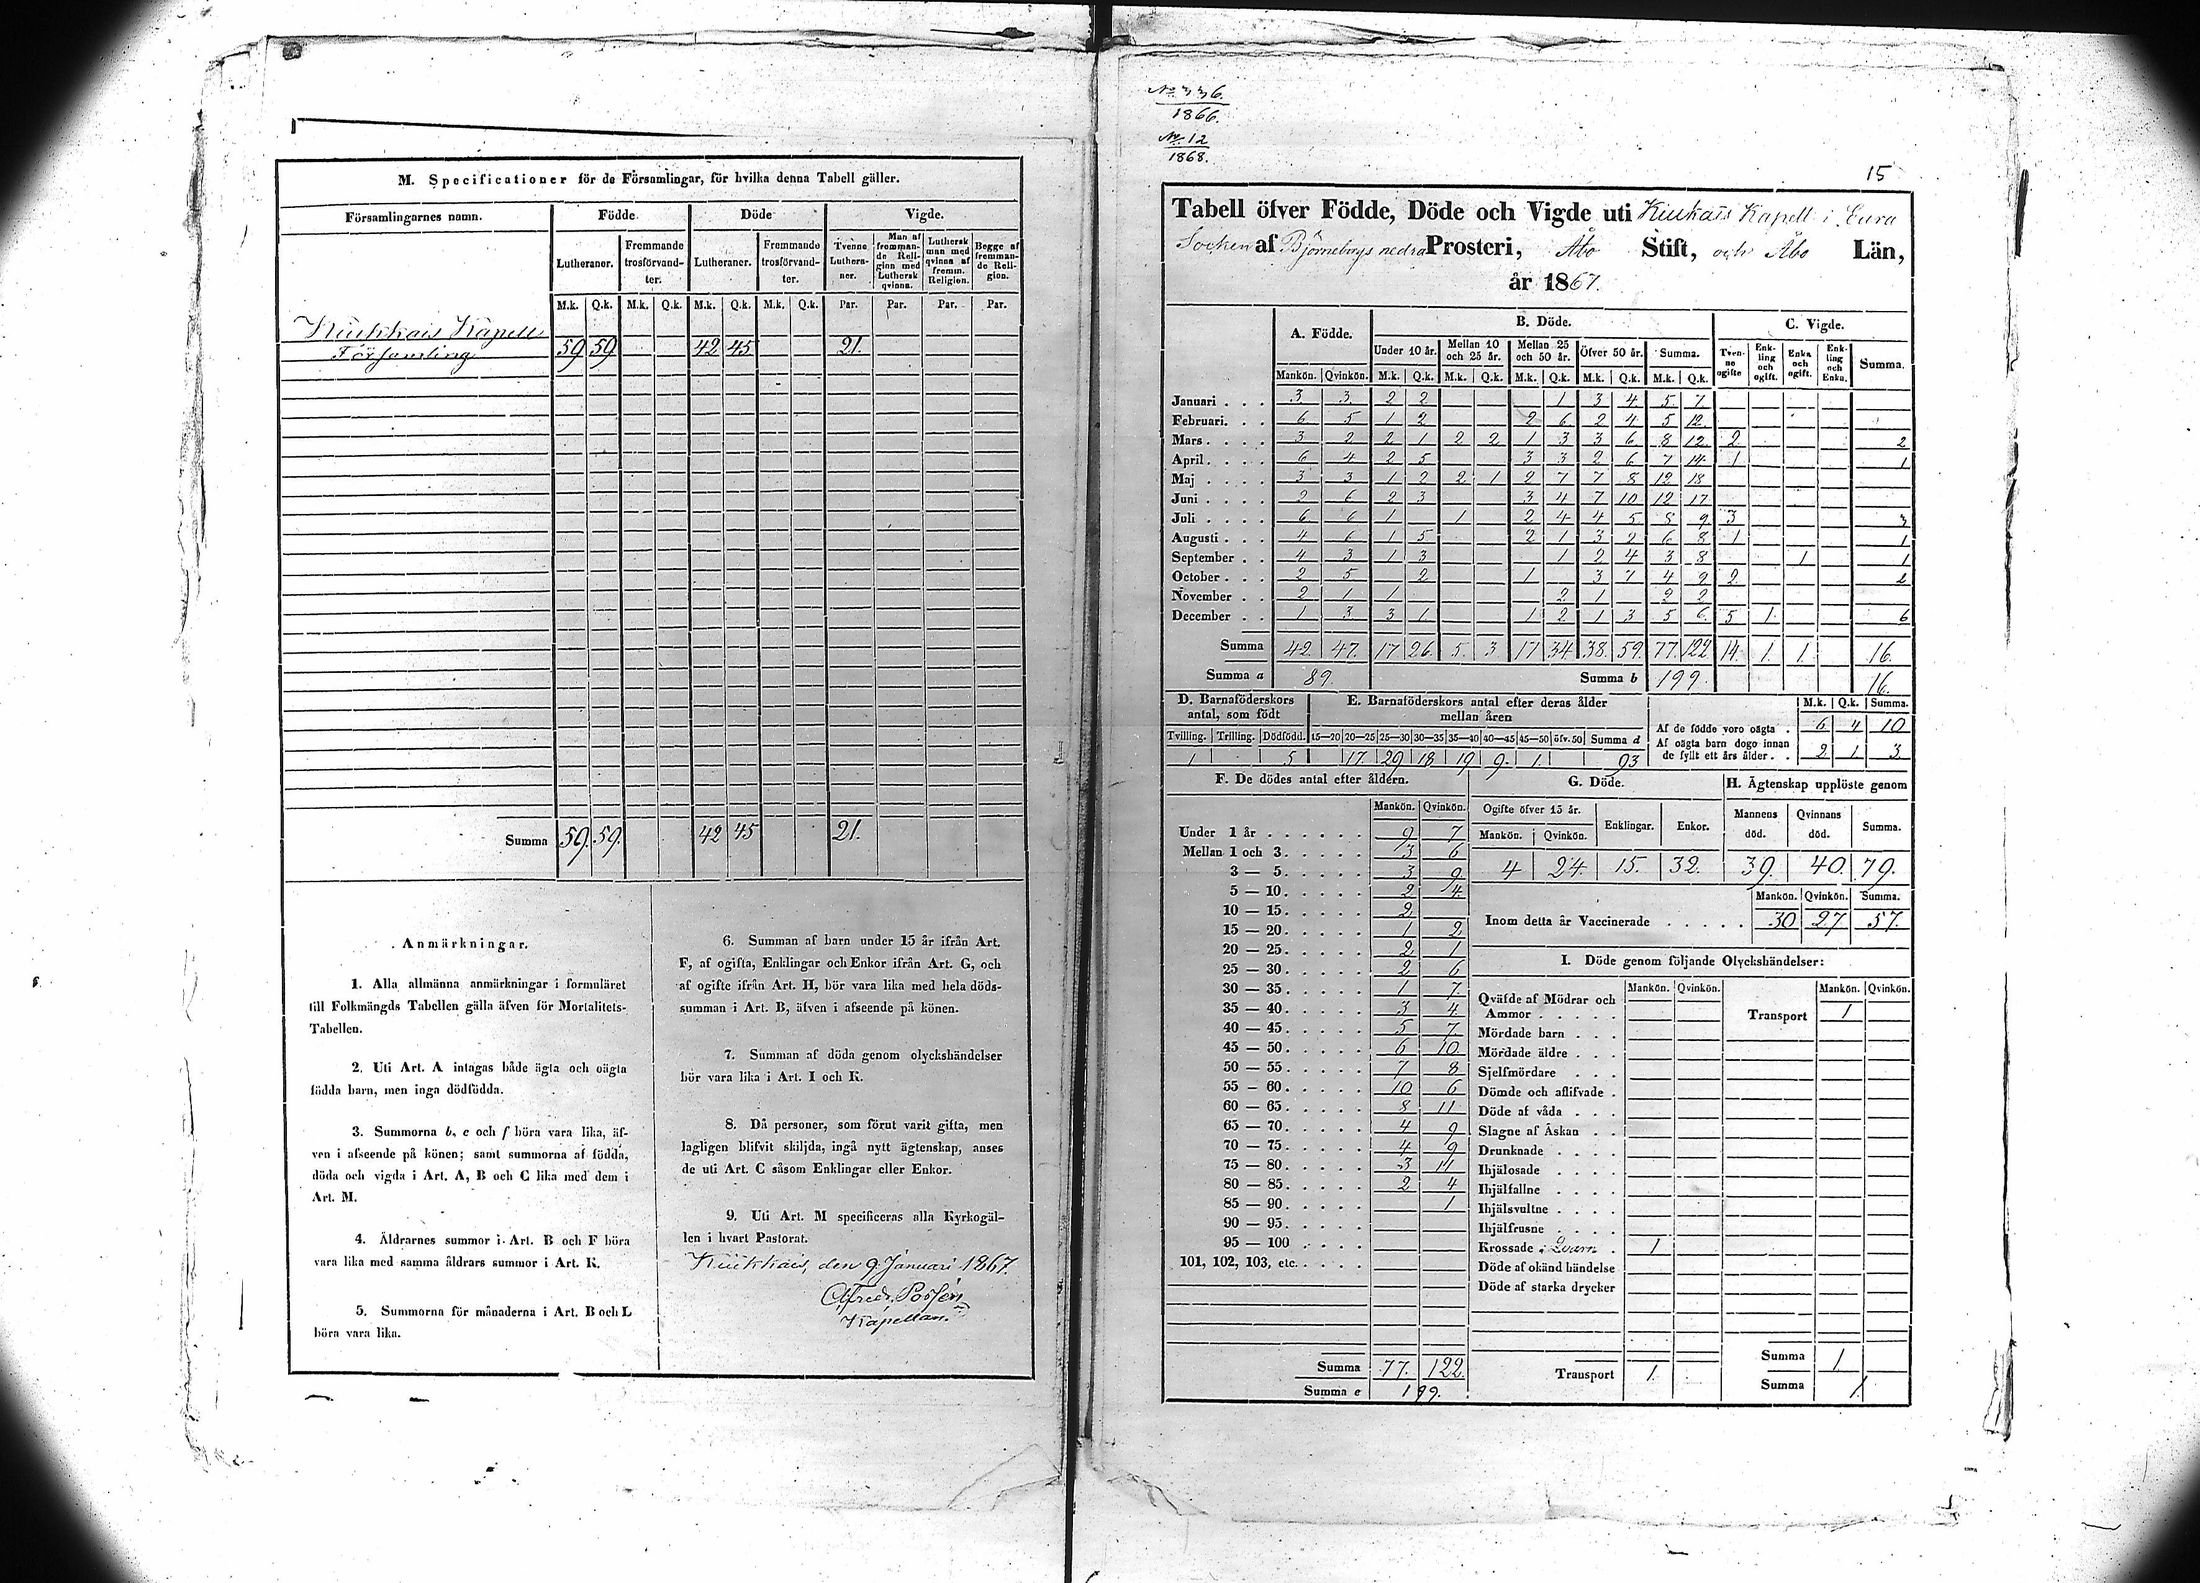 M. Specificationer för de Församlingar, för hvilka denna Tabell gäller.
Församlingarnes namn. Födde. Döde Vigde.
Lutheraner. Fremmande trosförvandter. Lutheraner. Fremmande trosförvandter. Tvenne Lutheraner. Man af fremmande Religion med Luthersk qvinna. Luthersk man med qvinna af fremm. Religion. Begge af fremmande Religion.
M.k. Q.k. M.k. Q.k. M.k. Q.k. M.k. Q.k. Par. Par. Par. Par.
Kiukkais Kapells
Församling 59 59 42 45 21.
Summa 59. 59. 42 45 21.
Anmärkningar.
1. Alla allmänna anmärkningar i formuläret
till Folkmängds Tabellen gälla äfven för Mortalitets-
Tabellen.
2. Uti Art. A intagas både ägta och oägta
födda barn, men inga dödfödda.
3. Summorna b, c och f böra vara lika, äf-
ven i afseende på könen; samt summorna af födda,
döda och vigda i Art. A, B och C lika med dem i
Art. M.
4. Åldrarnes summor i Art. B och F böra
vara lika med samma åldrars summor i Art. K.
5. Summorna för månaderna i Art. B och L
böra vara lika.
6. Summan af barn under 15 år ifrån Art.
F, af ogifta, Enklingar och Enkor ifrån Art. G, och
af ogifte ifrån Art. H, bör vara lika med hela döds-
summan i Art. B, äfven i afseende på könen.
7. Summan af döda genom olyckshändelser
bör vara lika i Art. I och K.
8. Då personer, som förut varit gifta, men
lagligen blifvit skiljda, ingå nytt ägtenskap, anses
de uti Art. C såsom Enklingar eller Enkor.
9. Uti Art. M specificeras alla Kyrkogäl-
len i hvart Pastorat.
Kiukkais, den 9. Januari 1867.
Alfred. Possén
Kapellan.
No 336.
1866.
No 12
1868.
15
Tabell öfver Födde, Döde och Vigde uti Kiukais Kapell i Eura
Socken af Björneborgs nedra Prosteri, Åbo Stift, och Åbo Län,
år 1867.
A. Födde. B. Döde. C. Vigde.
Under 10 år. Mellan 10 och 25 år. Mellan 25 och 50 år. Öfver 50 år. Summa. Tvenne ogifte Enkling och ogift. Enka och ogift. Enkling och Enka. Summa.
Mankön. Qvinkön. M.k. Q.k. M.k. Q.k. M.k. Q.k. M.k. Q.k. M.k. Q.k.
Januari . . . 3 3 2 2 1 3 4 5 7
Februari. . . 6 5 1 2 2 6 2 4 5 12
Mars . . . . 3 2 2 1 2 2 1 3 3 6 8 12 2 2
April . . . . 6 4 2 5 3 3 2 6 7 14 1 1
Maj . . . . 3 3 1 2 2 1 2 7 7 8 12 18
Juni . . . . 2 6 2 3 3 4 7 10 12 17
Juli . . . . 6 6 1 1 2 4 4 5 8 9 3 3
Augusti . . . 4 6 1 5 2 1 3 2 6 8 1 1
September . . 4 3 1 3 1 2 4 3 8 1 1
October . . . 2 5 2 1 3 7 4 9 2 2
November . . 2 1 1 2 1 2 2
December . . 1 3 3 1 1 2 1 3 5 6 5 1 6
Summa 42. 47. 17 26. 5. 3 17 34 38. 59. 77. 122 14. 1. 1. 16.
Summa a 89. Summa b 199. 16.
D. Barnaföderskors antal, som födt
E. Barnaföderskors antal efter deras ålder mellan åren
Tvilling. Trilling. Dödfödd. 15—20 20—25 25—30 30—35 35—40 40—45 45—50 öfv. 50 Summa d
1 5 17. 29 18 19 9. 1. 93
M.k. Q.k. Summa.
Af de födde voro oägta . 6 4 10
Af oägta barn dogo innan
de fyllt ett års ålder. . 2 1 3
F. De dödes antal efter åldern.
Mankön. Qvinkön.
Under 1 år . . . . . . 9 7
Mellan 1 och 3. . . . . 3 6
3 — 5. . . . . 3 9
5 — 10. . . . . 2 4.
10 — 15. . . . . 2
15 — 20. . . . . 1 2
20 — 25. . . . . 2 1
25 — 30. . . . . 2 6
30 — 35. . . . . 1 7.
35 — 40. . . . . 3 4
40 — 45. . . . . 5 7.
45 — 50. . . . . 6 10
50 — 55. . . . . 7 8
55 — 60. . . . . 10 6
60 — 65. . . . . 8 11
65 — 70. . . . . 4 9
70 — 75. . . . . 4 9
75 — 80. . . . . 3 11
80 — 85. . . . . 2 4
85 — 90. . . . . 1
90 — 95. . . . .
95 — 100 . . . .
101, 102, 103, etc. . . . .
Summa 77. 122.
Summa e 199.
G. Döde.
Ogifte öfver 15 år. Enklingar. Enkor.
Mankön. Qvinkön.
4 24. 15. 32.
H. Ägtenskap upplöste genom
Mannens död. Qvinnans död. Summa.
39. 40. 79.
Mankön. Qvinkön. Summa.
Inom detta år Vaccinerade . . . . . 30 27 57.
I. Döde genom följande Olyckshändelser:
Mankön. Qvinkön. Mankön. Qvinkön.
Qväfde af Mödrar och
Ammor . . . . . Transport 1
Mördade barn . . .
Mördade äldre . . .
Sjelfmördare . . .
Dömde och aflifvade .
Döde af våda . . .
Slagne af Åskan . .
Drunknade . . . .
Ihjälosade . . . .
Ihjälfallne . . . .
Ihjälsvultne . . . .
Ihjälfrusne . . . .
Krossade i Qvarn . 1
Döde af okänd händelse
Döde af starka drycker
Transport 1.
Summa 1
Summa 1.